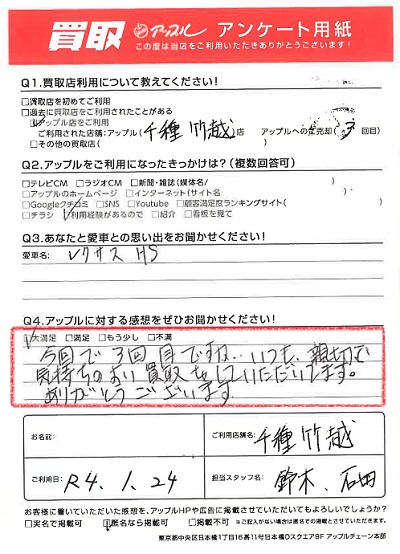 買取 アップル アンケート用紙
この度は当店をご利用いただきありがとうございます!
Q1.買取店利用について教えてください!
□買取店を初めてご利用
□過去に買取店をご利用されたことがある
□アップル店をご利用
ご利用された店舗:アップル(千種竹越)店 アップルへの売却(3回目)
□その他の買取店( )
Q2.アップルをご利用になったきっかけは?(複数回答可)
□テレビCM □ラジオCM □新聞・雑誌(媒体名/ )
□アップルのホームページ □インターネット(サイト名 )
□Googleクチコミ □SNS □Youtube □顧客満足度ランキングサイト( )
□チラシ □利用経験があるので □紹介 □看板を見て
Q3.あなたと愛車との思い出をお聞かせください!
愛車名: レクサス HS
Q4.アップルに対する感想をぜひお聞かせください!
□大満足 □満足 □もう少し □不満
今回で3回目ですね.. いつも、親切で
気持ちのよい買取をしていただいてます。
ありがとうございます
お名前:
ご利用店舗名: 千種竹越
ご利用日: R4.1.24
担当スタッフ名: 鈴木、石田
お客様に書いていただいた感想を、アップルHPや広告に掲載させていただいてもよろしいでしょうか?
□実名で掲載可 □匿名なら掲載可 □掲載不可 ※ご記入がない場合は匿名での掲載とさせていただきます。
東京都中央区日本橋1丁目16番11号日本橋Dスクエア9F アップルチェーン本部